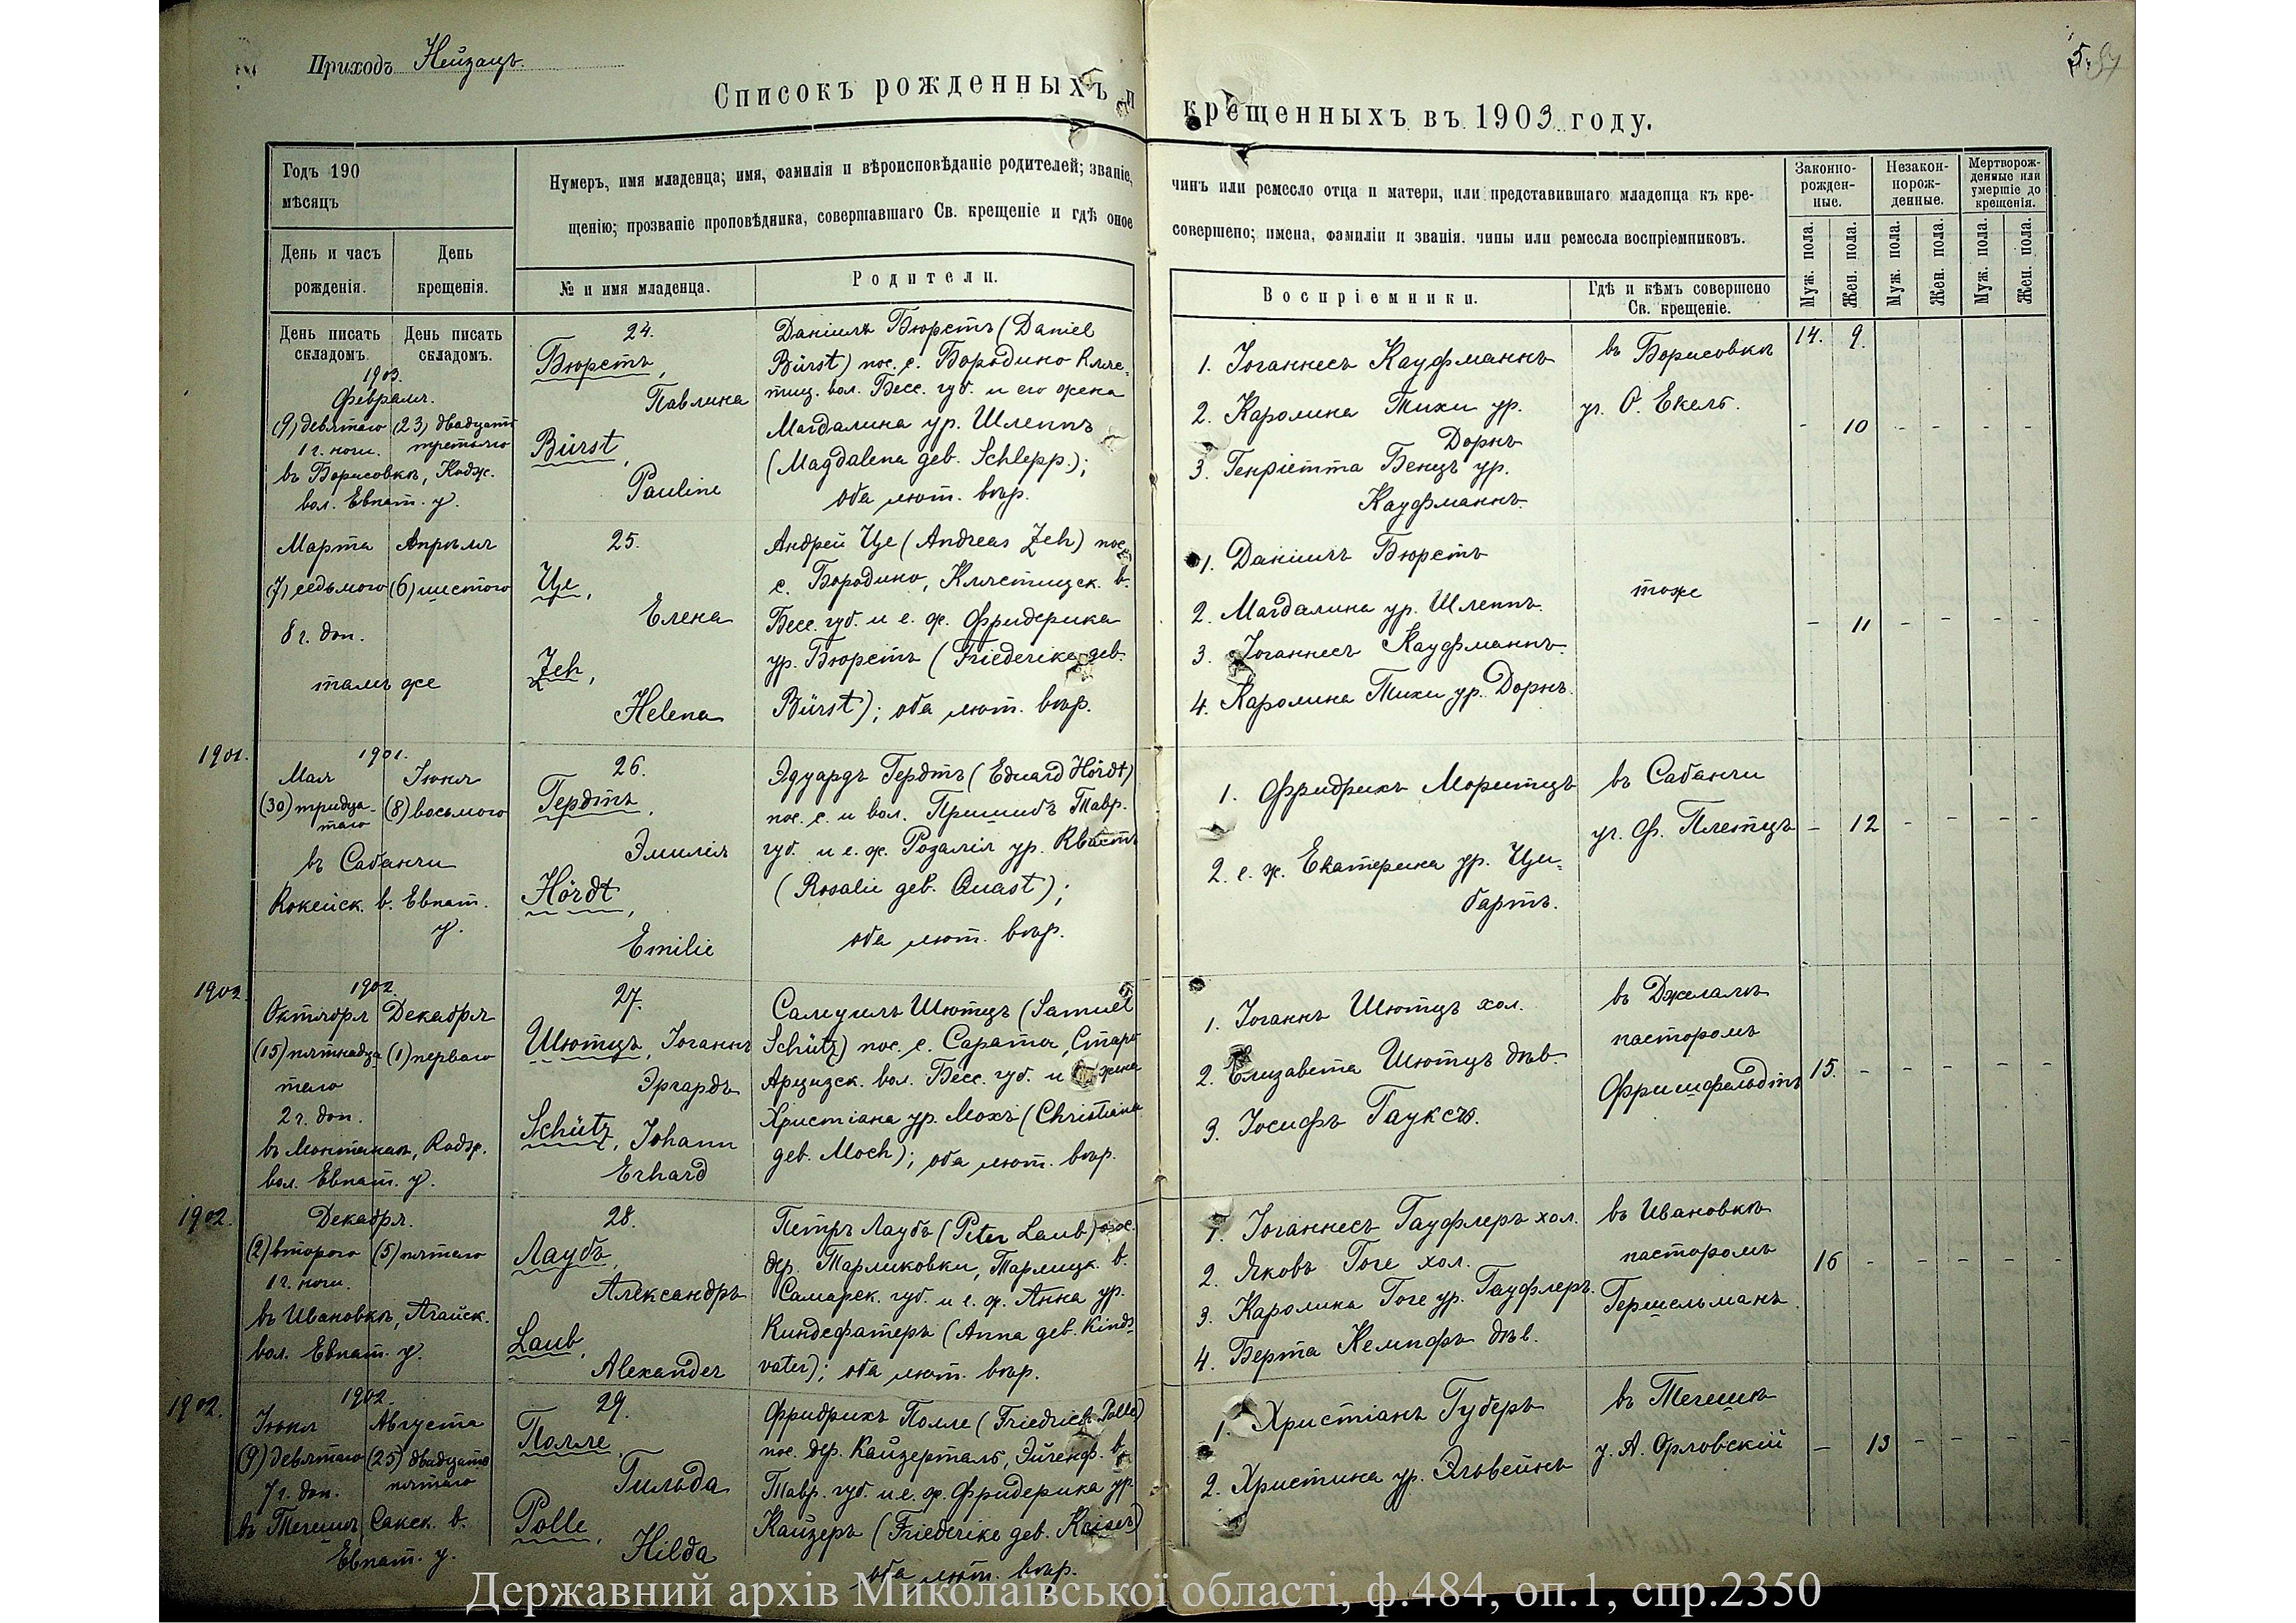 Приходъ Нейзацъ.
5.
57
Списокъ рожденныхъ и крещенныхъ въ 1903 году.
Годъ 190
мѣсяцъ
День и часъ
рожденія.
День
крещенія.
Нумеръ, имя младенца; имя, фамилія и вѣроисповѣданіе родителей; званіе,
щенію; прозваніе проповѣдника, совершавшаго Св. крещеніе и гдѣ оное
№ и имя младенца.
Родители.
чинъ или ремесло отца и матери, или представившаго младенца къ кре-
совершено; имена, фамиліи и званія, чины или ремесла воспріемниковъ.
Воспріемники.
Гдѣ и кѣмъ совершено
Св. крещеніе.
Законно-
рожден-
ные.
Незакон-
норож-
денные.
Мертворож-
денные или
умершіе до
крещенія.
Муж. пола.
Жен. пола.
Муж. пола.
Жен. пола.
Муж. пола.
Жен. пола.
День писать
складомъ.
День писать
складомъ.
1903.
Февраля.
(9) девятаго
1 г. ночи.
(23) двадцать
третьяго
въ Борисовкѣ, Кадж.
вол. Евпат. у.
24.
Бюрстъ,
Павлина
Bürst,
Pauline
Даніилъ Бюрстъ (Daniel
Bürst) пос. с. Бородино Кляс-
тиц. вол. Бесс. губ. и его жена
Магдалина ур. Шлеппъ
(Magdalena geb. Schlepp.);
оба лют. вѣр.
1. Іоганнесъ Кауфманнъ
2. Каролина Тихи ур.
Дорнъ
3. Генріетта Бенцъ ур.
Кауфманнъ.
въ Борисовкѣ
уч. О. Екель.
14. 9.
- 10 - - - -
Марта
(7) седьмого
8 г. доп.
Апрѣля
(6) шестого
тамъ же
25.
Це,
Елена
Zeh,
Helena
Андрей Це (Andreas Zeh) пос.
с. Бородино, Клястицск. в.
Бесс. губ. и е. ж. Фридерика
ур. Бюрстъ (Friederike geb.
Bürst); оба лют. вѣр.
1. Даніилъ Бюрстъ
2. Магдалина ур. Шлеппъ.
3. Іоганнесъ Кауфманнъ.
4. Каролина Тихи ур. Дорнъ.
тоже
- 11 - - - -
1901.
1901.
Мая
(30) тридца-
таго
Іюня
(8) восьмого
въ Сабанчи
Кокейск. в. Евпат.
у.
26.
Гердтъ,
Эмилія
Hördt,
Emilie
Эдуардъ Гердтъ (Eduard Hördt)
пос. с. и вол. Пришибъ Тавр.
губ. и е. ж. Розалія ур. Квастъ
(Rosalie geb. Quast);
оба лют. вѣр.
1. Фридрихъ Моритцъ
2. е. ж. Екатерина ур. Ци-
бартъ.
въ Сабанчи
уч. Ф. Плетцъ
- 12 - - - -
1902.
1902.
Октября
(15) пятнадца
таго
2 г. доп.
Декабря
(1) перваго
вол. Евпат. у.
27.
Шютцъ, Іоганнъ
Эргардъ
Schütz, Johann
Erhard
Самуилъ Шютцъ (Samuel
Schütz) пос. с. Сарата, Старо
Арцизск. вол. Бесс. губ. и жена
Христіана ур. Мохъ (Christiana
geb. Moch); оба лют. вѣр.
1. Іоганнъ Шютцъ хол.
2. Елизавета Шютцъ дѣв.
3. Іосифъ Гауксъ.
въ Джелалъ
пасторомъ
Фришфельдтъ
15. - - - - -
1902.
Декабря.
(2) второго
1 г. ночи.
(5) пятаго
въ Ивановкѣ, Агайск.
вол. Евпат. у.
28.
Лаубъ,
Александръ
Laub,
Alexander
Петръ Лаубъ (Peter Laub) пос.
дер. Тарликовки, Тарлицк. в.
Самарск. губ. и е. ж. Анна ур.
Киндсфатеръ (Anna geb. Kinds-
vater); оба лют. вѣр.
1. Іоганнесъ Гауфлеръ хол.
2. Яковъ Гоге хол.
3. Каролина Гоге ур. Гауфлеръ.
4. Берта Кемпфъ дѣв.
въ Ивановкѣ
пасторомъ
Гершельманъ.
16 - - - - -
1902.
1902.
Іюня
(9) девятаго
7 г. доп.
Августа
(25) двадцать
пятаго
въ Тегешъ, Сакск. в.
Евпат. у.
29.
Полле,
Гильда
Polle,
Hilda
Фридрихъ Полле (Friedrich Polle)
пос. дер. Кайзерталь, Эйгенф. в.
Тавр. губ. и е. ж. Фридерика ур.
Кайзеръ (Friederike geb. Kaiser)
оба лют. вѣр.
1. Христіанъ Губеръ
2. Христина ур. Эльвейнъ
въ Тегешъ
у. А. Орловскій
- 13 - - - -
Державний архів Миколаївської області, ф.484, оп.1, спр.2350